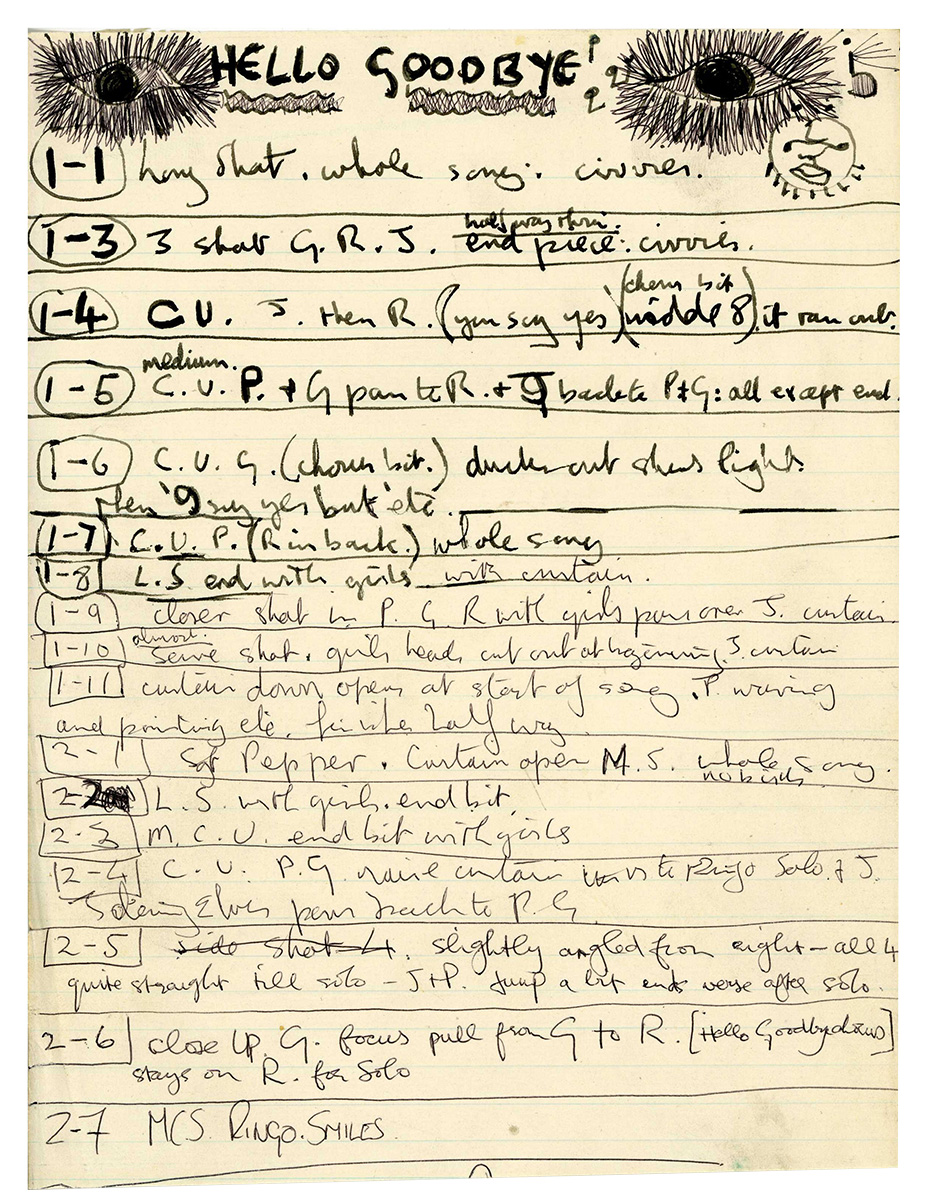 HELLO GOODBYE!
1-1 long shot. whole song. civvies.
half way thru
1-3 3 shot G. R. J. end piece: civvies.
(chorus bit)
1-4 C U. J. then R. (you say yes) middle 8) it ran out.
medium.
1-5 C. U. P. + G pan to R. + J back to P+G: all except end.
1-6 C. U. G. (chorus bit.) ducks out shows lights
then 'I say yes but' etc.
1-7 C. U. P. (R in back.) whole song
1-8 L.S. end with girls with curtain.
1-9 closer shot in P. G. R with girls pan over J. curtain.
almost.
1-10 same shot. girls heads cut out at beginning. J. curtain
1-11 curtain down opens at start of song. P. waving
and pointing etc. finishes half way.
2-1 Sgt Pepper. Curtain open M. S. whole song.
no birds
2-2 L. S. with girls. end bit.
2-3 M. C. U. end bit with girls
2-4 C. U. P. G. raise curtain to Ringo Solo. & J.
pan back to P. G.
2-5 side shot 4. slightly angled from right - all 4
quite straight till solo - J+P. Jump a bit ends verse after solo.
2-6 close UP. G. focus pull from G to R. [Hello Goodbye chorus]
stays on R. for Solo
2-7 MCS. RINGO. SMILES.